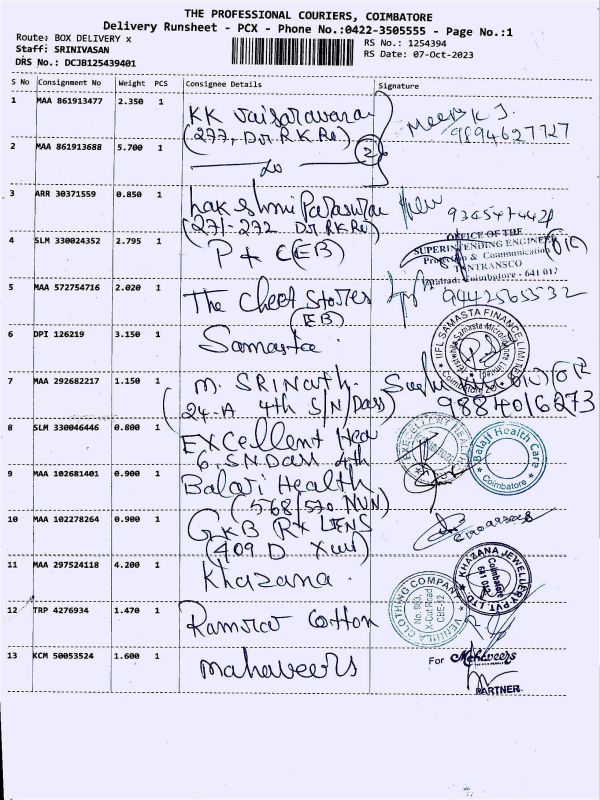 THE PROFESSIONAL COURIERS, COIMBATORE
Delivery Runsheet - PCX - Phone No.:0422-3505555 - Page No.:1
Route: BOX DELIVERY x
RS No.: 1254394
Staff: SRINIVASAN
RS Date: 07-Oct-2023
DRS No.: DCJB125439401
S No Consignment No Weight PCS Consignee Details Signature
1 MAA 861913477 2.350 1
KK
(277, Dr RK Rd)
9894627727
2 MAA 861913688 5.700 1
Do
2
3 ARR 30371559 0.850 1
Lakshmi
(271-272 Dr RK Rd)
4 SLM 330024352 2.795 1
P + C (EB)
OFFICE OF THE
SUPERINTENDING ENGINEER
Protection & Communication
TANTRANSCO
Coimbatore - 641 012
5 MAA 572754716 2.020 1
The Chest Stories
(EB)
9442565532
6 DPI 126219 3.150 1
Samasta
IIFL SAMASTA FINANCE LIMITED
Coimbatore
7 MAA 292682217 1.150 1
M. SRINATH
24-A 4th S/N/Dass)
9884016273
8 SLM 330046446 0.800 1
Excellent Hea
6, S.N. Dass 4th
9 MAA 102681401 0.900 1
Balaji Health
(568/570 NUN)
Balaji Health Care
Coimbatore
10 MAA 102278264 0.900 1
GKB Rx LENS
(409 D Xcut)
11 MAA 297524118 4.200 1
Khazana
KHAZANA JEWELLERY PVT. LTD
Coimbatore
641 012
12 TRP 4276934 1.470 1
Ramraj Cotton
CLOTHING COMPANY
X-Cut Road
CBE-12
13 KCM 50053524 1.600 1
Mahaveers
For Mahaveers
PARTNER